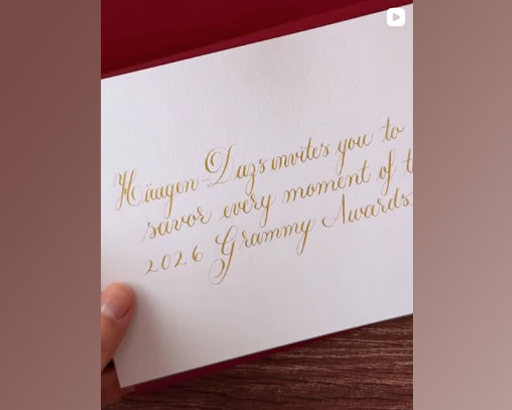 Häagen Dazs invites you to
savor every moment of t
2026 Grammy Awards.